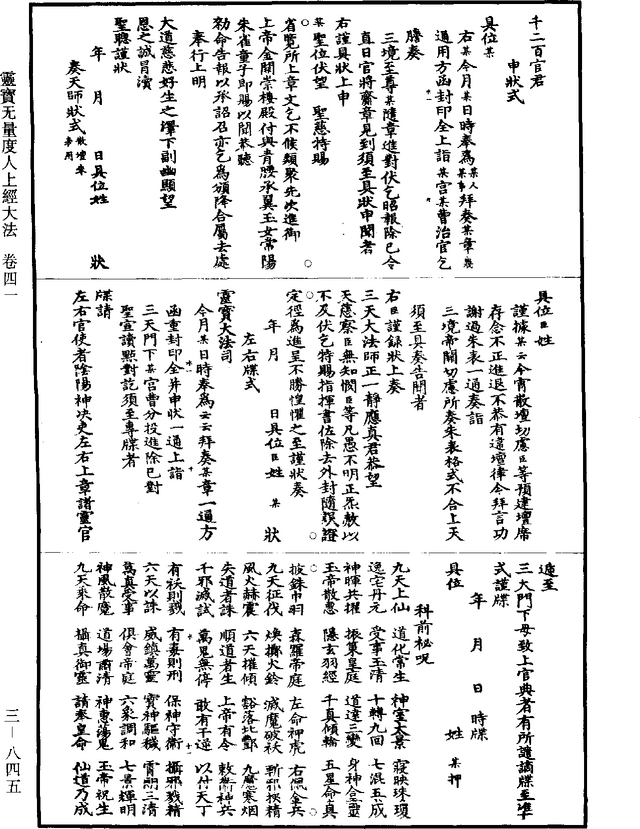 千二百官君
申狀式
具位某
右某今月某日時奉為某人某事拜奏某章幾
通用方函封印全上詣某宮某曹治官乞
謄奏
三境至尊某隨章進對伏乞昭報除已令
直日官將齎章見到須至具狀申聞者
右謹具狀上申
某聖位伏望 聖慈特賜
省覽所上章文乞不候類聚先次進御
上帝金闕崇樓殿付與青腰承翼玉女常陽
朱雀童子即賜以聞恭聽
勑命告報以承詔召亦乞為頒降合屬去處
奉行上明
大道慈悲好生之澤下副幽顯望
恩之誠冒瀆
聖聰謹狀
年 月 日具位姓 狀
奏天師狀式散壇奏章用
具位臣姓
謹據某云今宵散壇切慮臣等預建壇席
存念不正進退不恭有違壇律令拜言功
謝過朱表一通奏詣
三境帝闕切慮所奏朱表格式不合上天
須至具奏告聞者
右臣謹錄狀上奏
三天大法師正一靜應真君恭望
天慈察臣無知憫臣等凡愚不明正炁數以
不及伏乞特賜指揮書佐除去外封隨誤證
定徑為進呈不勝惶懼之至謹狀奏
年 月 日具位臣姓 某 狀
左右牒式
靈寶大法司
今月某日時奉為云云拜奏某章一通方
函重封印全并申狀一通上詣
三天門下某官曹分投進除已對
聖宣讀點對訖須至專牒者
牒請
左右官使者陰陽神决吏左右上章諸靈官
遞至
三天門下毋致上官典者有所譴謫牒至準
式謹牒
年 月 日 時牒
具位 姓 某 押
科前秘呪
九天上仙 道化常生 神室太景 寂映珠瓊
逸宅丹元 受事玉清 十轉九回 七混五成
神暉共耀 振策皇庭 道遠三變 身神合靈
玉帝散慧 隱玄羽經 千真傾輪 五星命真
披銖巾羽 森羅帝庭 左命神虎 右佩金兵
九天征伐 煥擲火鈴 滅魔破祅 斬邪揆精
風火赫震 六天摧傾 豁落北酆 九魔寒烟
失道者誅 順道者生 上帝有令 敕衛神兵
千邪滅試 萬鬼無停 敢有干逆 以付天丁
有祅則戮 有毒則刑 保神守衛 攝邪戮精
六天以誅 威鎮萬靈 寶神驅穢 霄朗三清
萬真受事 俱會帝庭 六炁調和 七景輝明
神風散魔 道場肅清 神惠蕩鬼 玉帝祝生
九天乘命 攝真御靈 請奏皇命 仙道乃成
靈寶无量度人上經大法 卷四一
三—八四五